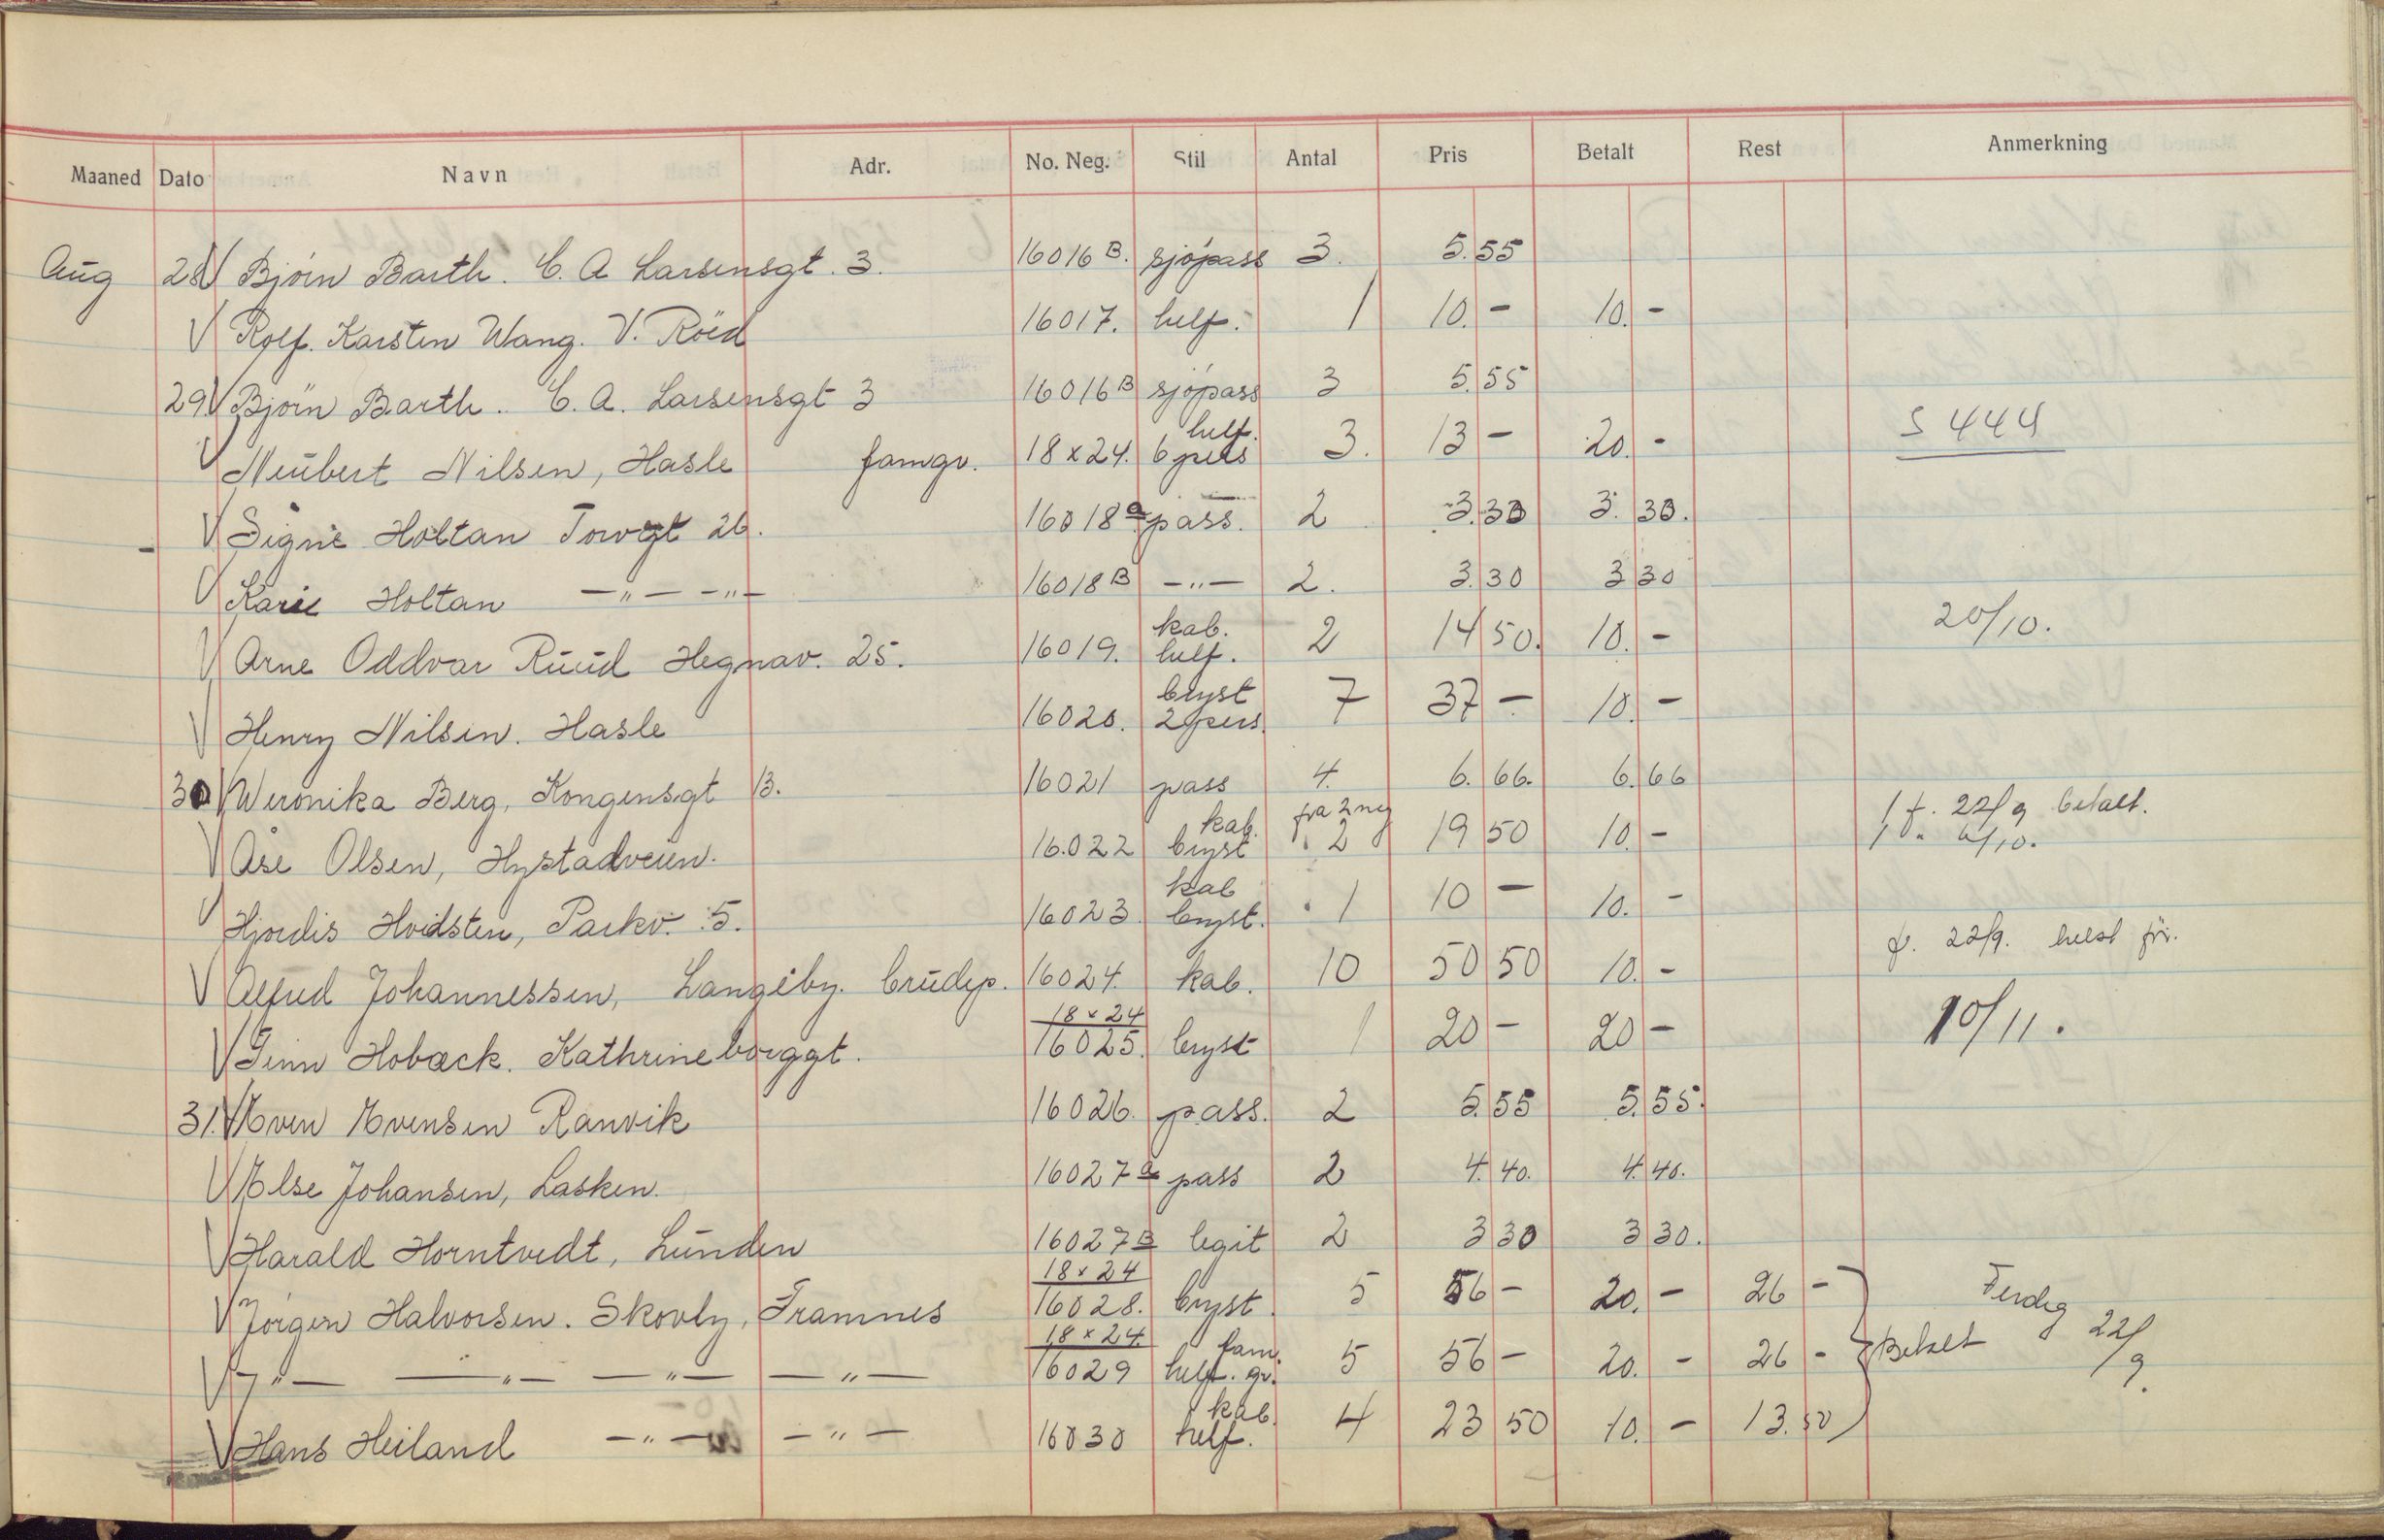 Maaned Dato Navn Adr. No. Neg. Stil Antal Pris Betalt Rest Anmerkning
Aug 28 V Bjørn Barth. C. A Larsensgt. 3. 16016 B. sjøpass 3. 5.55
V Rolf. Karsten Wang. V. Röed 16017. helf. 1 10. - 10. -
29 V Bjørn Barth. C. A. Larsensgt 3 16016 B sjøpass 3 5.55
V Neubert Nilsen, Hasle famgr. 18 x 24. helf. 6 pers 3. 13 - 20. - S 444
V Signe Holtan Torvgt 26. 16018 a pass. 2 3.30 3.30.
V Karie Holtan -"- -"- 16018 B -"- 2. 3.30 3 30
V Arne Oddvar Ruud Hegnav. 25. 16019. kab. helf. 2 14 50. 10. - 20/10.
V Henry Nilsen. Hasle 16020. bryst 2 pers. 7 37 - 10. -
30 V Weronika Berg, Kongensgt 13. 16021 pass 4. 6.66. 6.66
V Åse Olsen, Hystadveien. 16.022 kab. bryst fra 2 neg 2 19 50 10. - 1 f. 22/9 betalt.
1 " 6/10.
V Hjordis Hvidsten, Parkv. 5. 16023. kab bryst. 1 10 - 10. -
V Alfred Johannessen, Langeby. brudep. 16024. kab. 10 50 50 10. - f. 22/9. helst før.
V Finn Hobæck. Kathrineborggt. 18 x 24 16025. bryst 1 20 - 20 - 10/11.
31. V Even Evensen Ranvik 16026. pass. 2 5.55 5.55.
V Else Johansen, Lasken. 16027 a pass 2 4.40. 4.40.
V Harald Horntvedt, Lunden 16027 B legit 2 3 30 3 30.
V Jørgen Halvorsen. Skovly, Framnes 18 x 24 16028. bryst. 5 56 - 20. - 26 - Ferdig 22/9.
V -"- -"- -"- -"- 18 x 24. 16029 helf. fam. gr. 5 56 - 20. - 26 - Betalt
V Hans Heiland -"- -"- 16030 kab. helf. 4 23 50 10. - 13.50